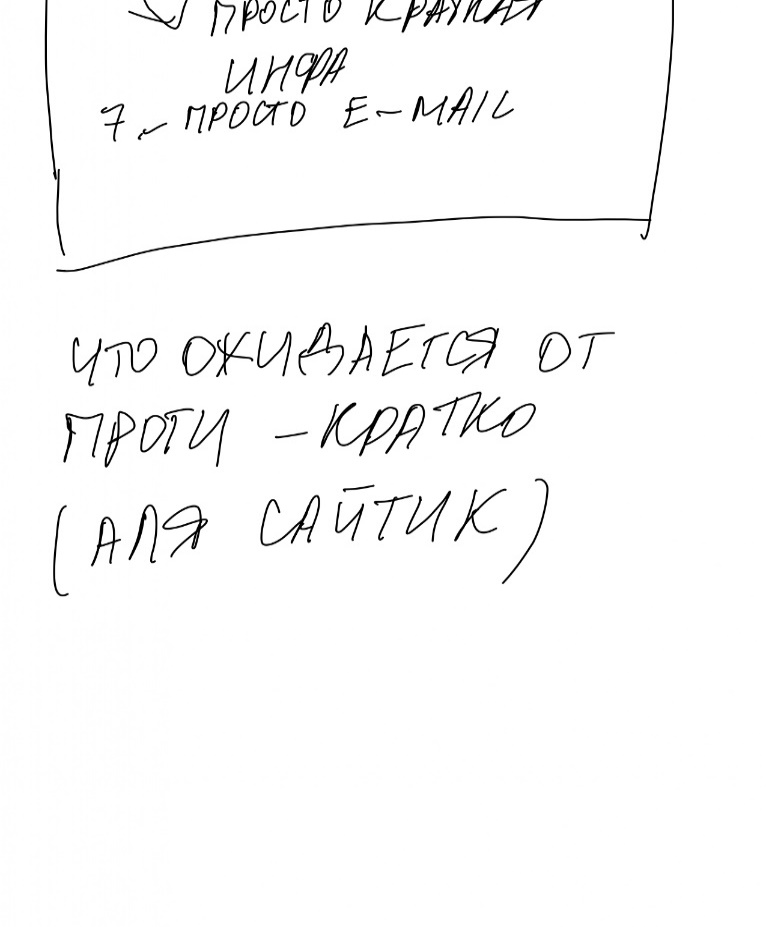 ПРОСТО КРАТКАЯ
ИНФА
7 - ПРОСТО E-MAIL
ЧТО ОЖИДАЕТСЯ ОТ
ПРОТИ - КРАТКО
(АЛЯ САЙТИК)